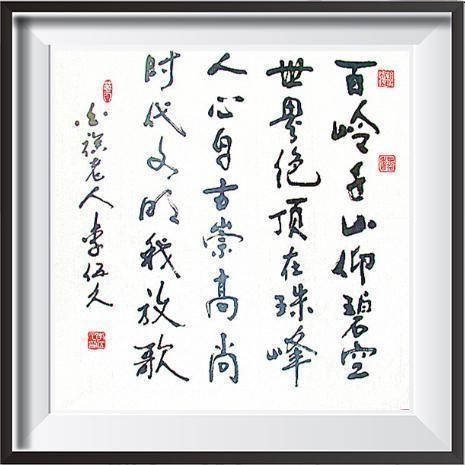 百岭千山仰碧空
世界绝顶在珠峰
人心自古崇高尚
时代文明我放歌
白族老人李伍久